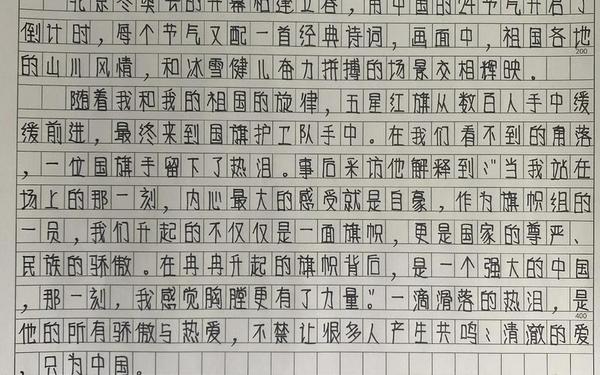 北京冬奥会的开幕恰逢立春，用中国的24节气开启了
倒计时，每个节气又配一首经典诗词，画面中，祖国各地
的山川风情，和冰雪健儿奋力拼搏的场景交相辉映。
200
随着我和我的祖国的旋律，五星红旗从数百人手中缓
缓前进，最终来到国旗护卫队手中。在我们看不到的角落
，一位国旗手留下了热泪。事后采访他解释到："当我站在
场上的那一刻，内心最大的感受就是自豪，作为旗帜组的
一员，我们升起的不仅仅是一面旗帜，更是国家的尊严、
民族的骄傲。在冉冉升起的旗帜背后，是一个强大的中国
，那一刻，我感觉胸膛更有了力量。"一滴滑落的热泪，是
他的所有骄傲与热爱，不禁让很多人产生共鸣：清澈的爱
400
，只为中国。